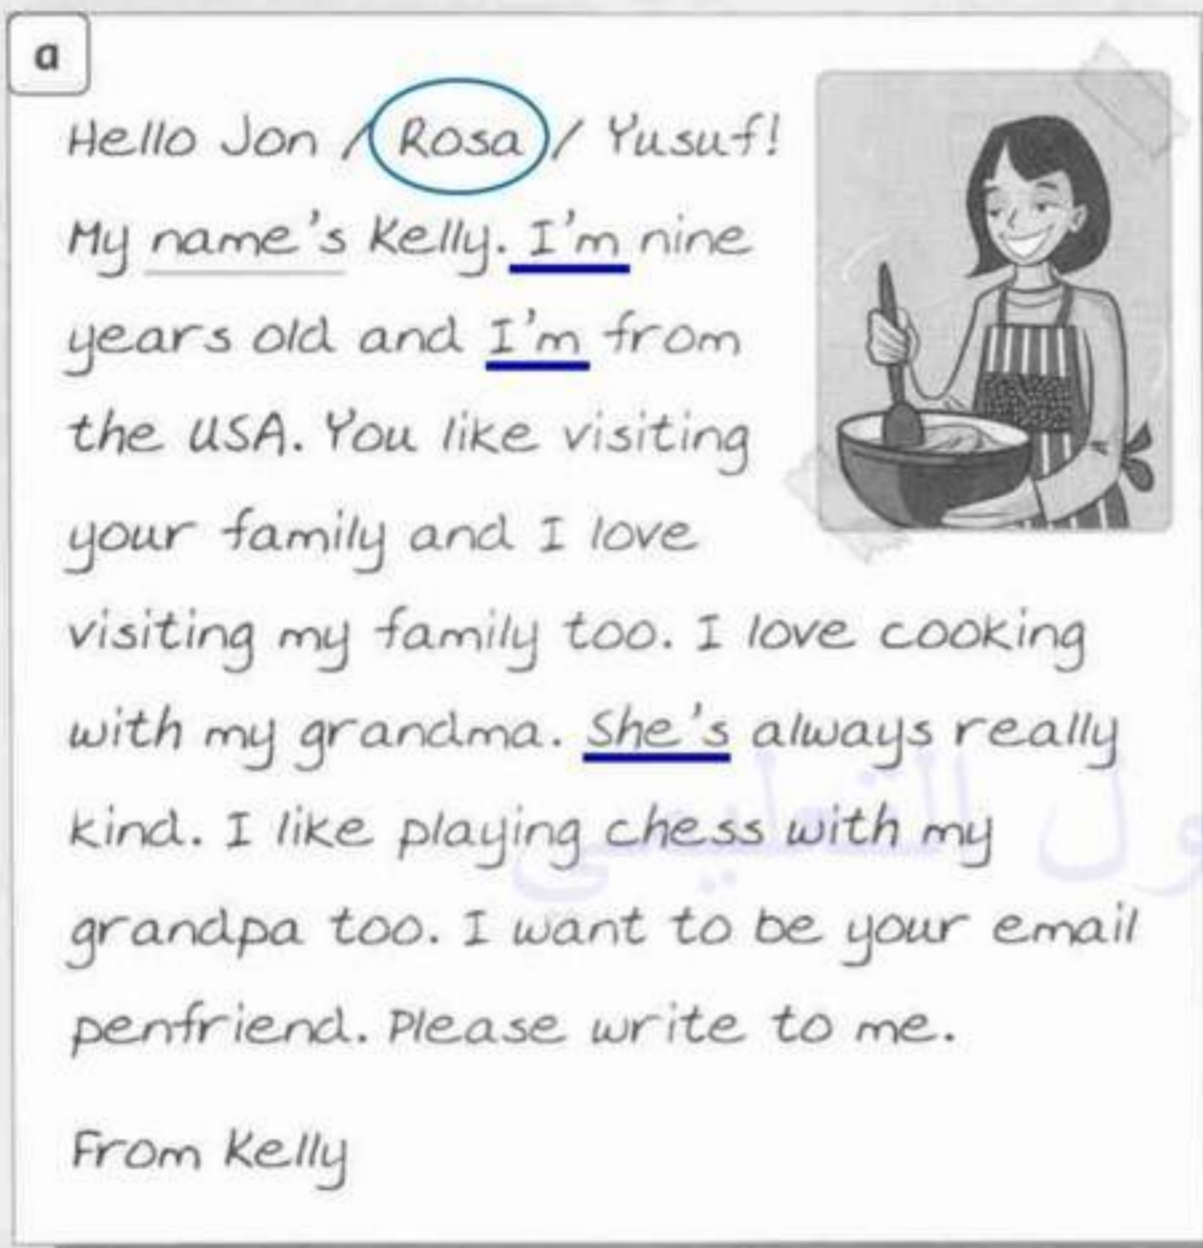 a
Hello Jon / Rosa / Yusuf!
My name's Kelly. I'm nine
years old and I'm from
the USA. You like visiting
your family and I love
visiting my family too. I love cooking
with my grandma. She's always really
kind. I like playing chess with my
grandpa too. I want to be your email
penfriend. Please write to me.
From Kelly
ول التعليمي